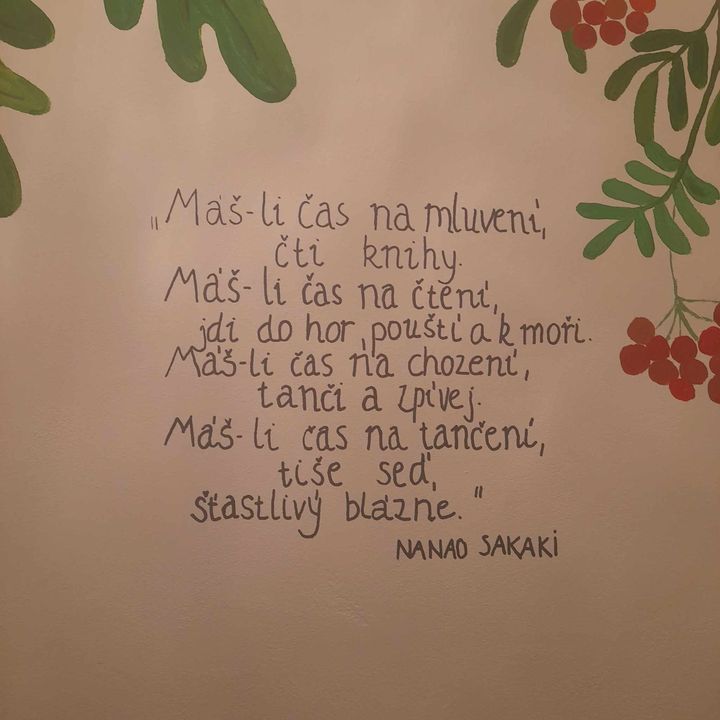 „Máš-li čas na mluvení,
čti knihy.
Máš-li čas na čtení,
jdi do hor, pouští a k moři.
Máš-li čas na chození,
tanči a zpívej.
Máš-li čas na tančení,
tiše seď,
šťastlivý blázne."
NANAO SAKAKI